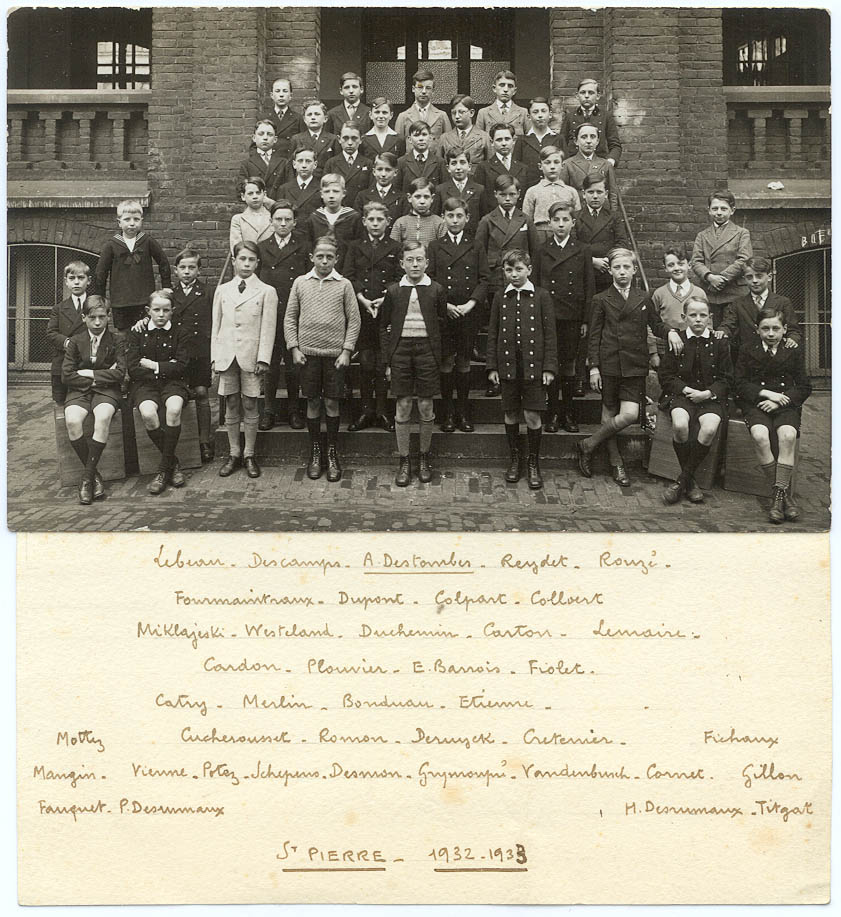 BOE
Lebeau - Descamps - A. Destombes - Reydet - Rouzé -
Fourmaintraux - Dupont - Colpart - Collvert
Miklajeski - Westeland - Duchemin - Carton - Lemaire -
Cardon - Plouvier - E. Barrois - Fiolet.
Catry - Merlin - Bonduau - Etienne -
Mottez Cucherousset - Romon - Deruyck - Cretenier - Fichaux
Mangin - Vienne - Potez - Schepens - Desmon - Vandenbusch - Cornet. Gillon
Fauquet - P. Desrumaux H. Desrumaux - Titgat
ST PIERRE - 1932-1933